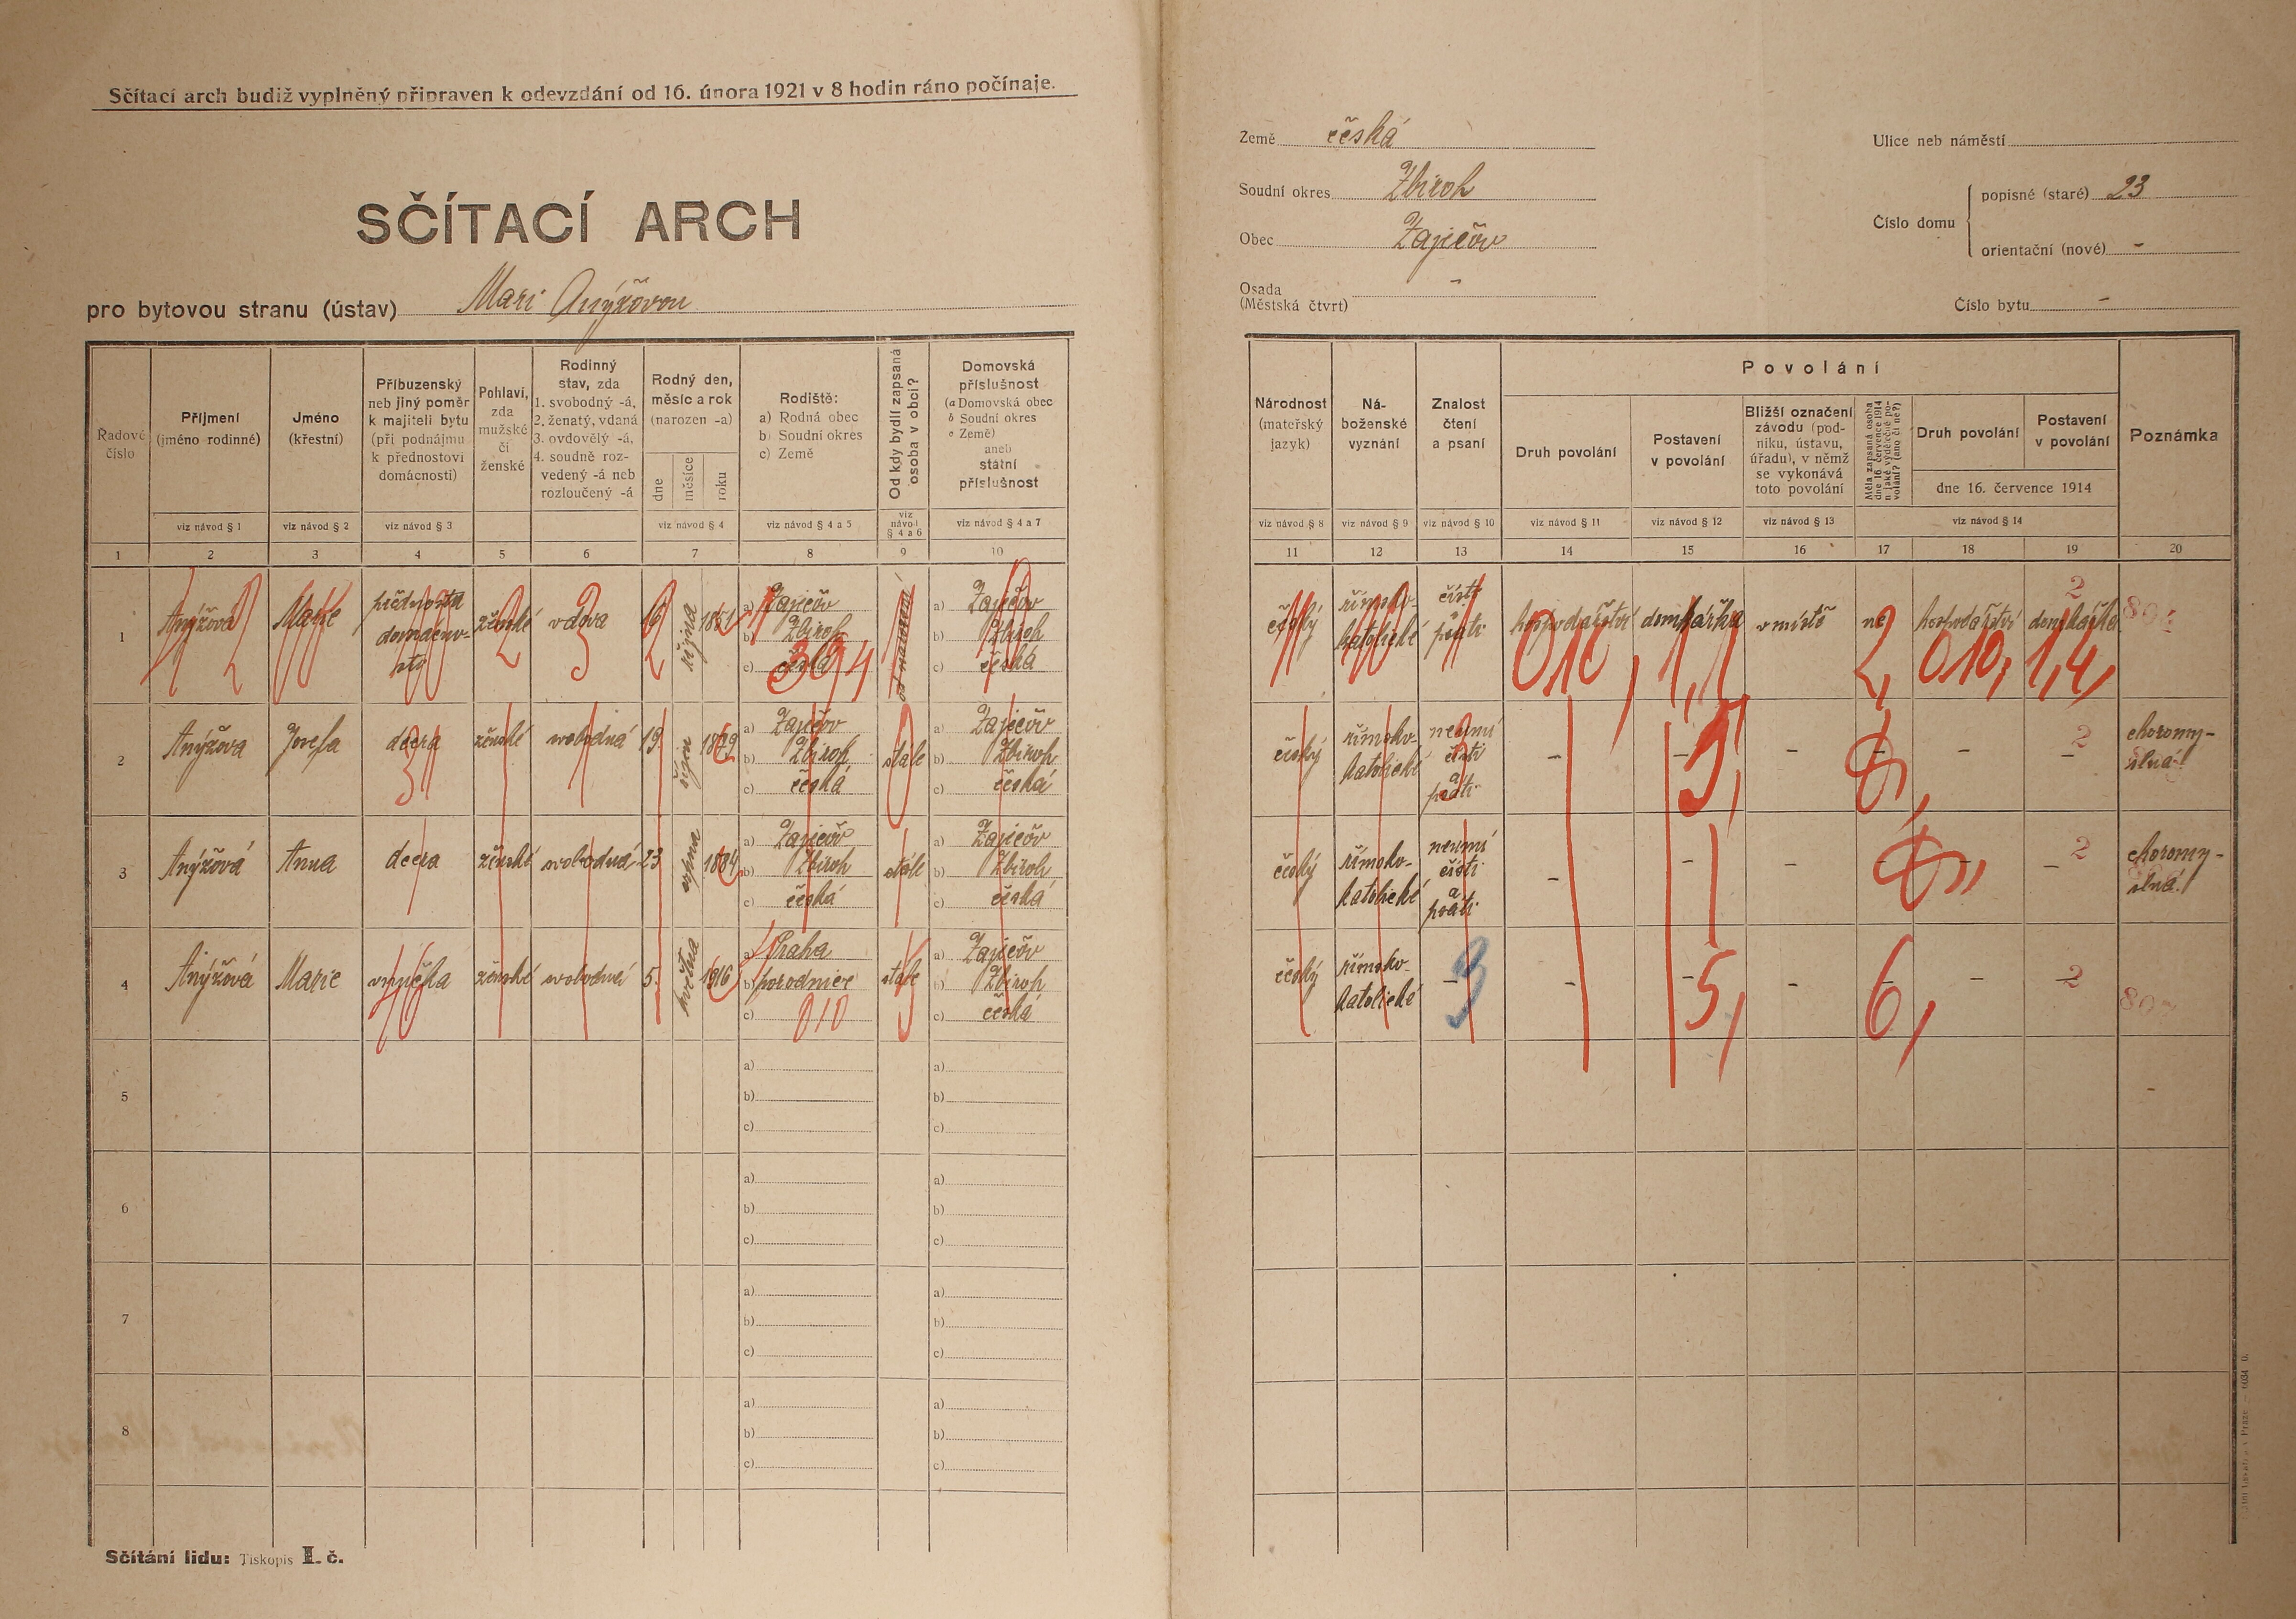 Sčítací arch budiž vyplněný připraven k odevzdání od 16. února 1921 v 8 hodin ráno počínaje.
SČÍTACÍ ARCH
pro bytovou stranu (ústav) Mari Anýžovou
Země česká
Soudní okres Zbiroh
Obec Zaječov
Osada
(Městská čtvrt) -
Ulice neb náměstí
Číslo domu
popisné (staré) 23
orientační (nové) -
Číslo bytu -
Řadové
číslo
Příjmení
(jméno rodinné)
viz návod § 1
Jméno
(křestní)
viz návod § 2
Příbuzenský
neb jiný poměr
k majiteli bytu
(při podnájmu
k přednostovi
domácnosti)
viz návod § 3
Pohlaví,
zda
mužské
či
ženské
Rodinný
stav, zda
1. svobodný -á,
2. ženatý, vdaná
3. ovdovělý -á,
4. soudně roz-
vedený -á neb
rozloučený -á
Rodný den,
měsíc a rok
(narozen -a)
dne
měsíce
roku
viz návod § 4
Rodiště:
a) Rodná obec
b) Soudní okres
c) Země
viz návod § 4 a 5
Od kdy bydlí zapsaná
osoba v obci?
viz
návod
§ 4 a 6
Domovská
příslušnost
(a Domovská obec
b Soudní okres
c Země)
aneb
státní
příslušnost
viz návod § 4 a 7
Národnost
(mateřský
jazyk)
viz návod § 8
Ná-
boženské
vyznání
viz návod § 9
Znalost
čtení
a psaní
viz návod § 10
Povolání
Druh povolání
viz návod § 11
Postavení
v povolání
viz návod § 12
Bližší označení
závodu (pod-
niku, ústavu,
úřadu), v němž
se vykonává
toto povolání
viz návod § 13
Měla zapsaná osoba
dne 16. července 1914
nějaké výdělečné po-
volání? (ano či ne?)
Druh povolání
Postavení
v povolání
dne 16. července 1914
viz návod § 14
Poznámka
1 2 3 4 5 6 7 8 9 10 11 12 13 14 15 16 17 18 19 20
1 Anýžová Marie přednosta
domácno-
sti
ženské vdova 16 října 1851
a) Zaječov
b) Zbiroh
c) česká
od narození
a) Zaječov
b) Zbiroh
c) česká
český římsko-
katolické
čísti
psáti
hospodářství domkářka v místě ne hospodářství domkářka
010, 2, 010, 1,4,
2 Anýžova Josefa dcera ženské svobodná 19. říjen 1879
a) Zaječov
b) Zbiroh
c) česká
stále
a) Zaječov
b) Zbiroh
c) česká
český římsko-
katolické
neumí
čísti
a
psáti
- - - - - -
choromy-
slná!
3 Anýžová Anna dcera ženské svobodná 23 srpna 1884
a) Zaječov
b) Zbiroh
c) česká
stále
a) Zaječov
b) Zbiroh
c) česká
český římsko-
katolické
neumí
čísti
a
psáti
- - - - - -
choromy-
slná!
4 Anýžová Marie vnučka ženské svobodná 5. května 1916
a) Praha
b) porodnice
c) 010
stále
a) Zaječov
b) Zbiroh
c) česká
český římsko-
katolické
- 3 - - 5, - 6, - 2
5 a)
b)
c)
a)
b)
c)
6 a)
b)
c)
a)
b)
c)
7 a)
b)
c)
a)
b)
c)
8 a)
b)
c)
a)
b)
c)
Sčítání lidu: Tiskopis I. č.